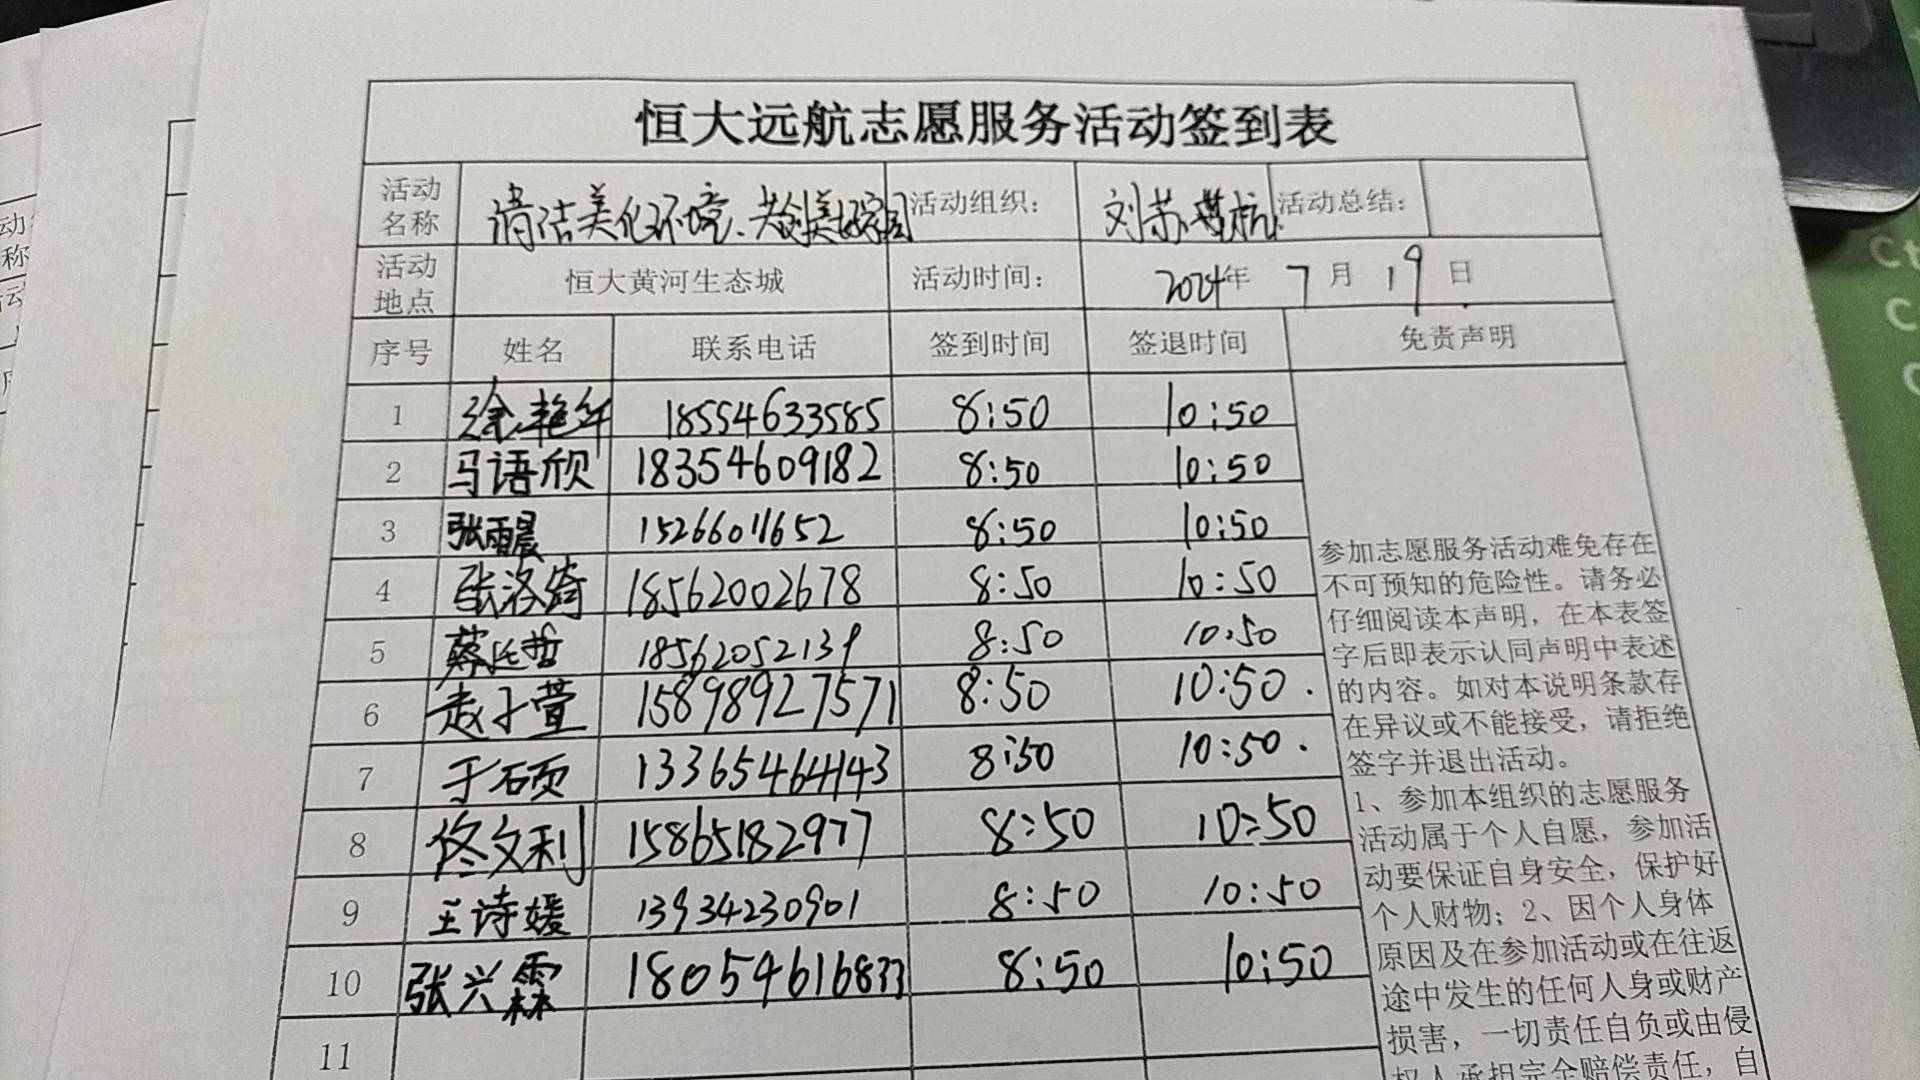 恒大远航志愿服务活动签到表
活动名称 清洁美化环境、共创美好家园 活动组织: 刘苏 活动总结:
活动地点 恒大黄河生态城 活动时间: 2024年 7月 19日
序号 姓名 联系电话 签到时间 签退时间 免责声明
1 徐艳华 18554633585 8:50 10:50
2 马语欣 18354609182 8:50 10:50
3 张雨晨 15266011652 8:50 10:50
4 张洛绮 18562002678 8:50 10:50
5 蔡 哲 18562052139 8:50 10:50
6 赵子萱 15898927571 8:50 10:50
7 于硕 13365464143 8:50 10:50
8 佟文利 15865182977 8:50 10:50
9 王诗媛 13934230901 8:50 10:50
10 张兴霖 18054616833 8:50 10:50
11
参加志愿服务活动难免存在
不可预知的危险性。请务必
仔细阅读本声明，在本表签
字后即表示认同声明中表述
的内容。如对本说明条款存
在异议或不能接受，请拒绝
签字并退出活动。
1、参加本组织的志愿服务
活动属于个人自愿，参加活
动要保证自身安全，保护好
个人财物；2、因个人身体
原因及在参加活动或在往返
途中发生的任何人身或财产
损害，一切责任自负或由侵
权人承担完全赔偿责任，自